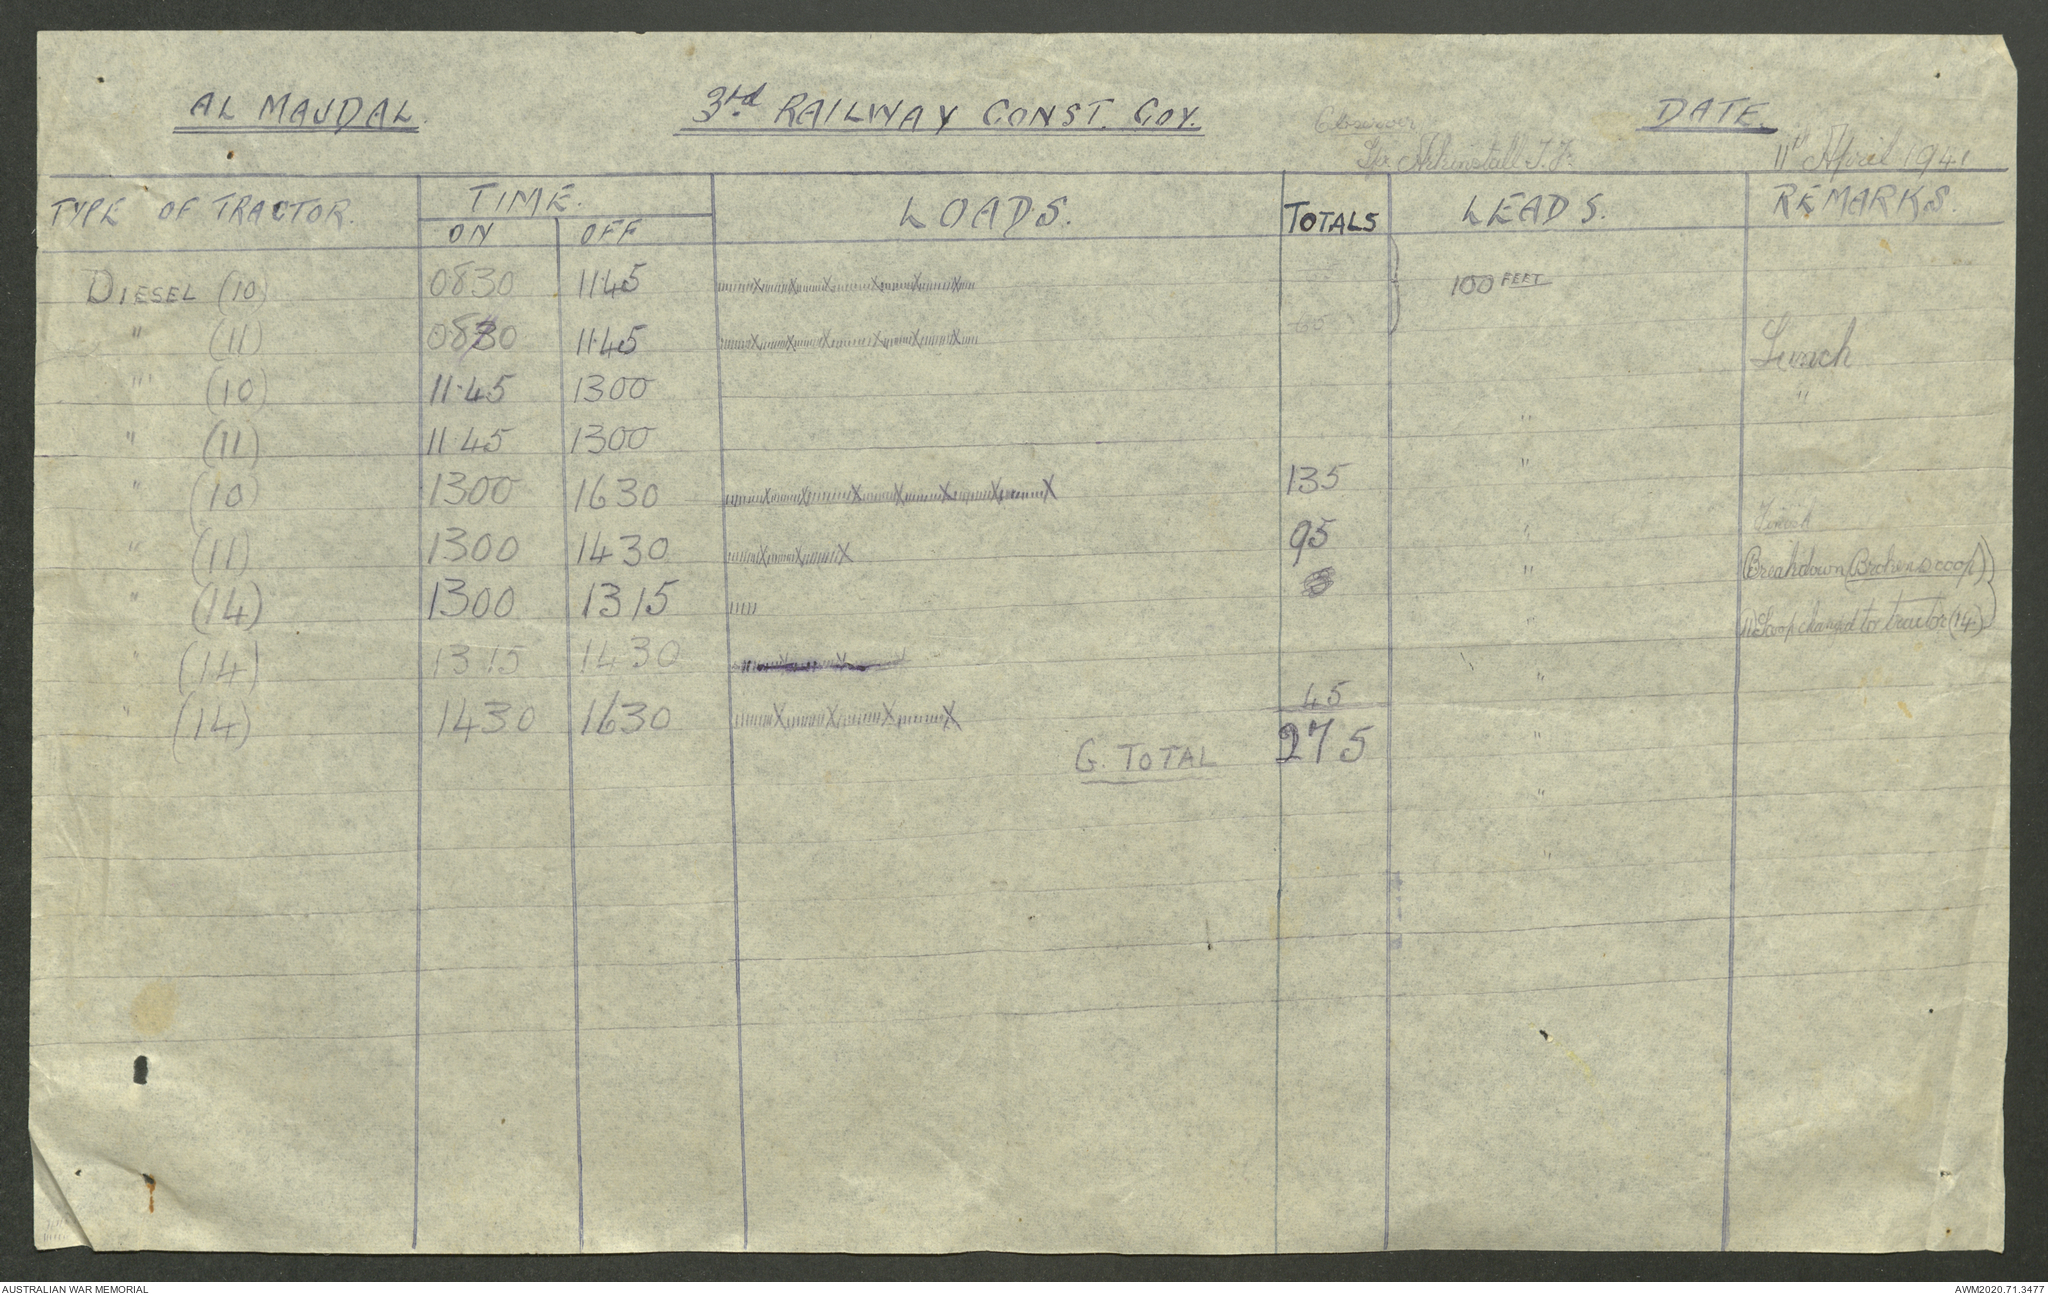 AL MAJDAL. 3rd. RAILWAY CONST. COY. Observer DATE.
Spr. T. F. 11th April 1941
TYPE OF TRACTOR. TIME. LOADS. TOTALS LEADS. REMARKS.
ON OFF
DIESEL (10) 0830 11·45 100 FEET
" (11) 0830 11·45 Lunch
" (10) 11·45 1300 "
" (11) 11·45 1300 "
" (10) 1300 1630 135 " Finish
" (11) 1300 1430 95 " Breakdown (Broken scoop)
" (14) 1300 1315 " (11) Scoop changed to tractor (14)
(14) 1315 1430 "
" (14) 1430 1630 45 "
G. TOTAL 275 "
"
AUSTRALIAN WAR MEMORIAL AWM2020.71.3477